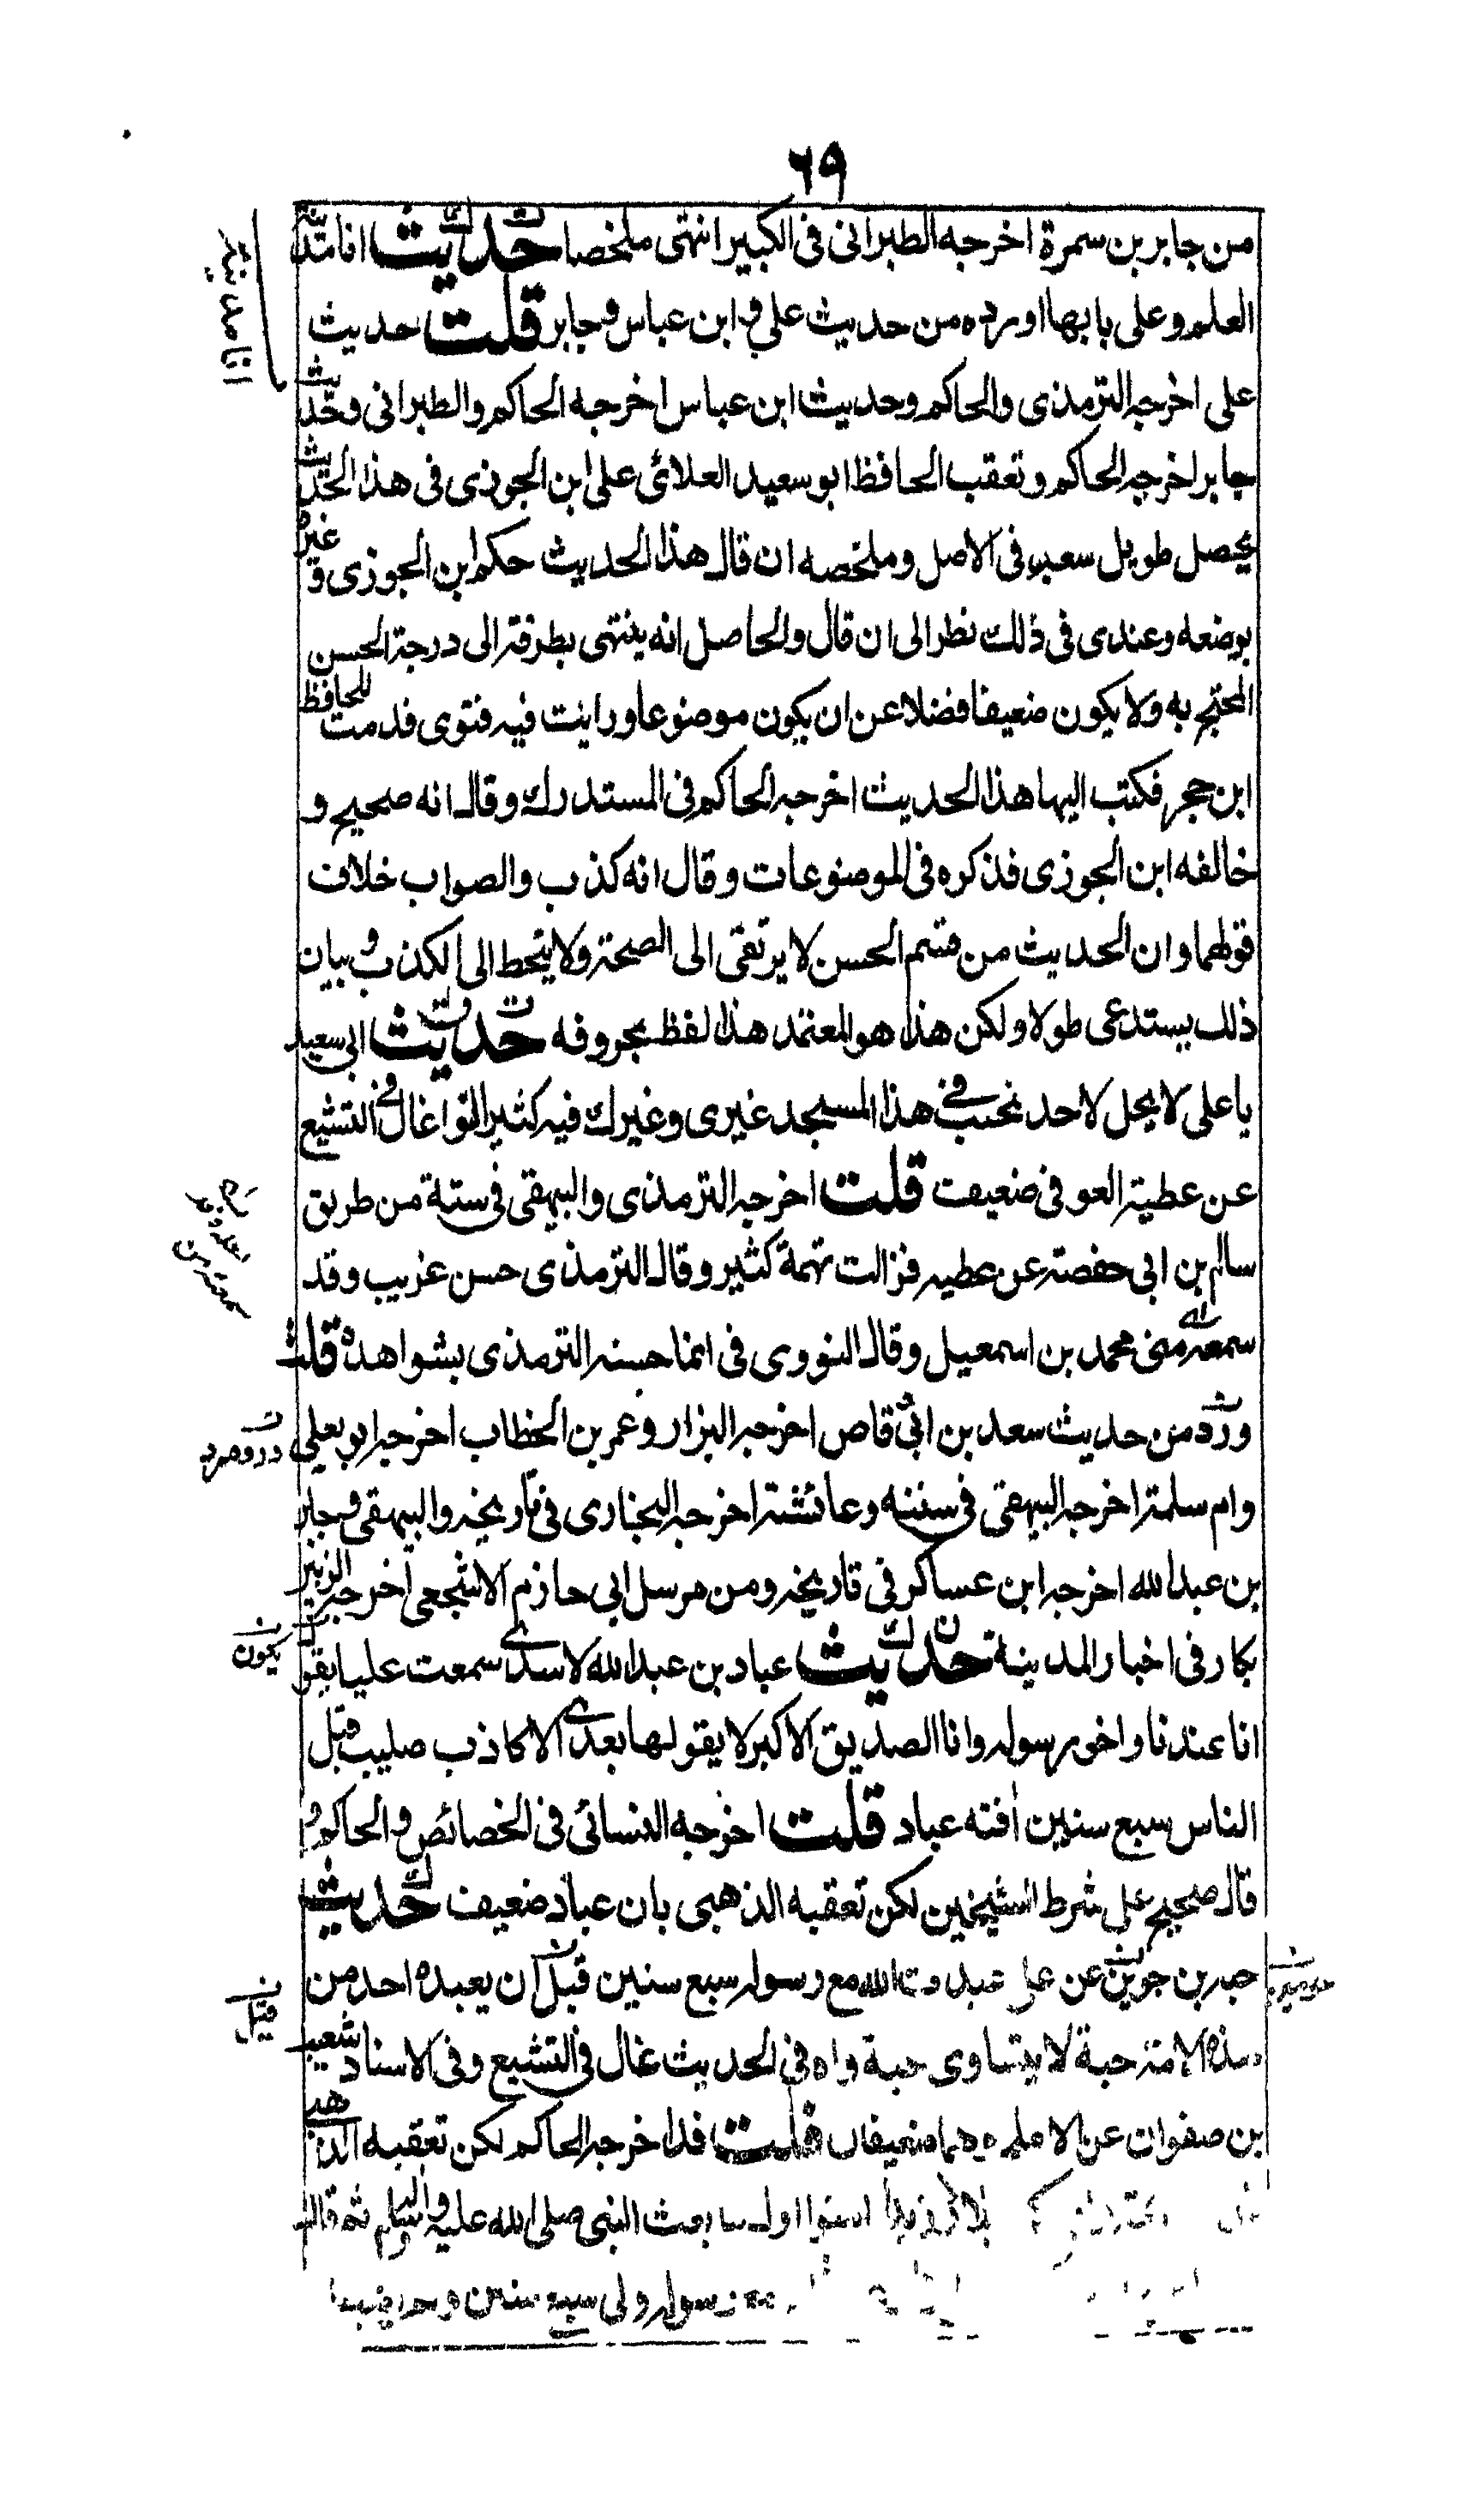 ٦٩
من جابر بن سمرة اخرجه الطبرانى فى الكبير انتهى ملخصا حديث انا مدينة
العلم وعلى بابها اورده من حديث على و ابن عباس وجابر قلت حديث
على اخرجه الترمذى والحاكم وحديث ابن عباس اخرجه الحاكم والطبرانى وحديث
جابر اخرجه الحاكم وتعقب الحافظ ابو سعيد العلائى على ابن الجوزى فى هذا الحديث
طويل فى الاصل وملخصه ان قال هذا الحديث حكم ابن الجوزى وغيره
بوضعه وعندى فى ذلك نظر الى ان قال والحاصل انه ينتهى بطرقه الى درجة الحسن
المحتج به ولا يكون ضعيفا فضلا عن ان يكون موضوعا ورايت فيه فتوى قدمت للحافظ
ابن حجر فكتب اليها هذا الحديث اخرجه الحاكم فى المستدرك وقال انه صحيح و
خالفه ابن الجوزى فذكره فى الموضوعات وقال انه كذب والصواب خلاف
قولهما وان الحديث من قسم الحسن لا يرتقى الى الصحة ولا ينحط الى الكذب وبيان
ذلك يستدعى طولا ولكن هذا هو المعتمد هذا لفظ بحروفه حديث ابى سعيد
يا على لا يحل لاحد يجنب فى هذا المسجد غيرى وغيرك فيه كثير النوا غال فى التشيع
عن عطية العوفى ضعيف قلت اخرجه الترمذى والبيهقى فى سننه من طريق
سالم بن ابى حفصة عن عطيه فزالت تهمة كثير وقال الترمذى حسن غريب وقد
سمعه منى محمد بن اسمعيل وقال النووى فى انما حسنه الترمذى بشواهده قلت
ورد من حديث سعد بن ابى وقاص اخرجه البزار وعمر بن الخطاب اخرجه ابو يعلى
وام سلمة اخرجه البيهقى فى سننه وعائشة اخرجه البخارى فى تاريخه والبيهقى وجابر
بن عبد الله اخرجه ابن عساكر فى تاريخه ومن مرسل ابى حازم الاشجعى اخرجه الزبير
بكار فى اخبار المدينة حديث عباد بن عبد الله الاسدى سمعت عليا يقول
انا عبد نا واخو رسوله وانا الصديق الاكبر لا يقولها بعدى الا كاذب صليت قبل
الناس سبع سنين افته عباد قلت اخرجه النسائى فى الخصائص والحاكم و
قال صحيح على شرط الشيخين لكن تعقبه الذهبى بان عباد ضعيف حديث
جوين عن على عبدت الله مع رسوله سبع سنين قبل ان يعبده احد من
هذه الامة حبة لا يتساوى حبة واه فى الحديث غال فى التشيع وفى الاسناد شعيب
بن صفوان عن الاجلح وهما ضعيفان قلت قد اخرجه الحاكم لكن تعقبه الذهبى
اول ما بعث النبى صلى الله عليه والسلم ثم قال
رسوله ولى سبع سنين
انا مدينة
يكون
قبل